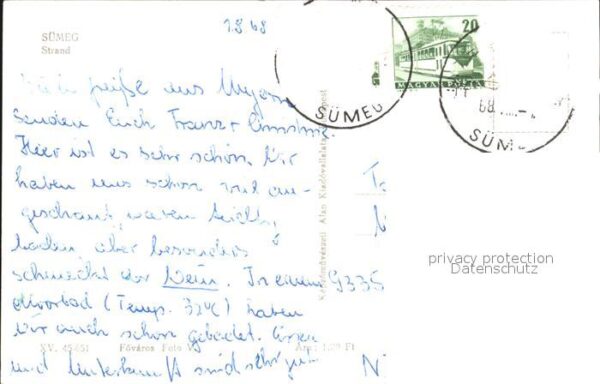 1.8.68
SÜMEG
Strand
20
MAGYAR POSTA
SÜMEG
68
SÜM
Grüße aus Ungarn
senden Euch Franz +
Hier ist es sehr schön. Wir
haben uns schon viel an-
geschaut, waren
baden, aber besonders
schmeckt der Wein. In einem
(Temp. 32°C) haben
wir auch schon gebadet. Essen
und Unterkunft sind sehr gut
9335
N
Képzőművészeti Alap Kiadóvállalata, Budapest
privacy protection
Datenschutz
XV. 45651
Főváros Foto V.
Ára: 1.20 Ft